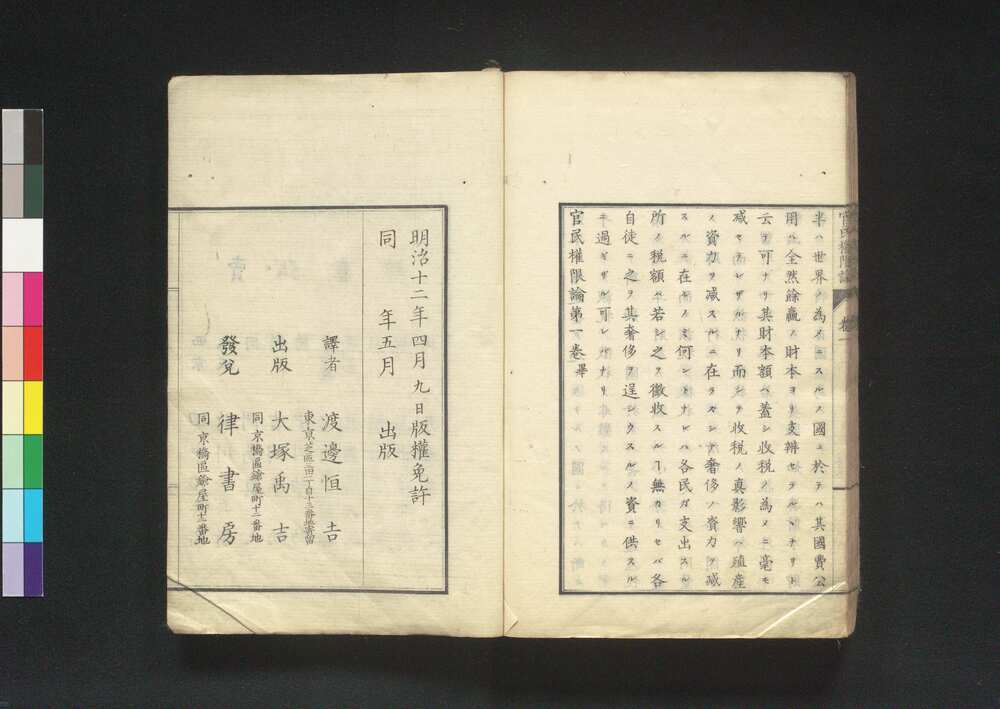 半ハ世界ノ為メニスルノ國ニ於テハ其國費公
用ハ全然餘贏ノ財本ヨリ支辨セラルヽナリト
云テ可ナリ其財本額ハ蓋シ收税ノ為メニ毫モ
减セラレザルナリ而シテ收税ノ真影響ハ殖産
ノ資力ヲ减スルニ在ラガシテ奢侈ノ資力ヲ减
スルニ在レ何ントナレハ各民ガ支出スル
所ノ税額ハ若シ之ヲ徴收スルヿ無カリセバ各
自徒ニ之ヲ其奢侈ヲ逞シクスルノ資ニ供スル
ニ過ギザル可レバナリ
官民權限論第一卷畢
明治十二年四月九日版權免許
同 年五月 出版
譯者 渡邊恒吉
東京芝區三田一丁目十三番地寄留
出版 大塚禹吉
同京橋區鎗屋町十二番地
發兌 律書房
同京橋區鎗屋町十二番地